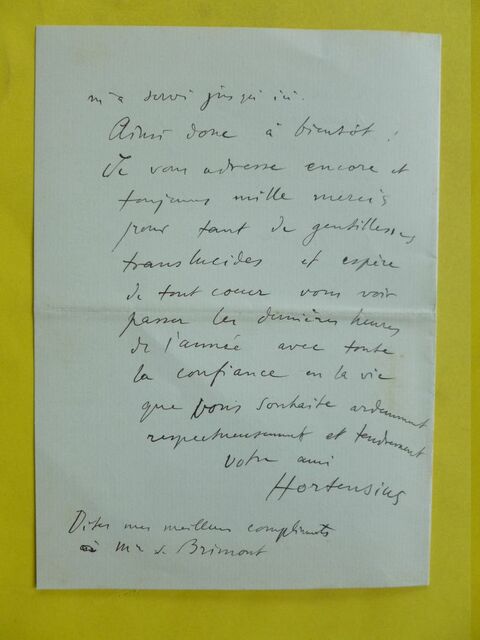 m'a servi jusqu'ici.
Ainsi donc à bientôt !
Je vous adresse encore et
toujours mille mercis
pour tant de gentillesses
translucides et espère
de tout coeur vous voir
passer les dernières heures
de l'année avec toute
la confiance en la vie
que vous souhaite ardemment
respectueusement et tendrement
votre ami
Hortensius
Dites mes meilleurs compliments
à Mr de Brimont